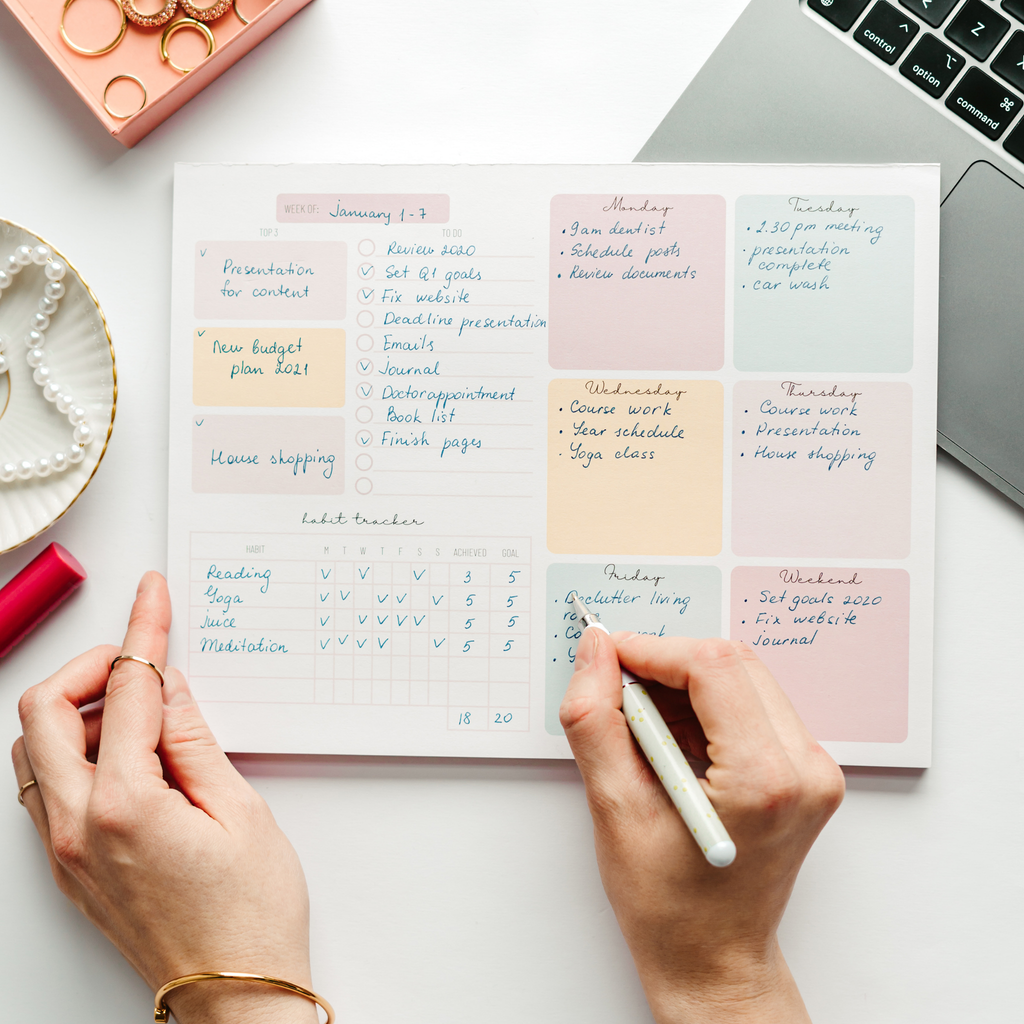 control
option
command
Z
WEEK OF: January 1-7
TOP 3
Presentation
for content
New Budget
plan 2021
House shopping
TO DO
Review 2020
Set Q1 goals
Fix website
Deadline presentation
Emails
Journal
Doctor appointment
Book list
Finish pages
habit tracker
HABIT M T W T F S S ACHIEVED GOAL
Reading 3 5
Yoga 5 5
Juice 5 5
Meditation 5 5
18 20
Monday
• 9am dentist
• Schedule posts
• Review documents
Tuesday
• 2.30 pm meeting
• presentation
complete
• car wash
Wednesday
• Course work
• Year schedule
• Yoga class
Thursday
• Course work
• Presentation
• House shopping
Friday
• Declutter living
Weekend
• Set goals 2020
• Fix website
• journal